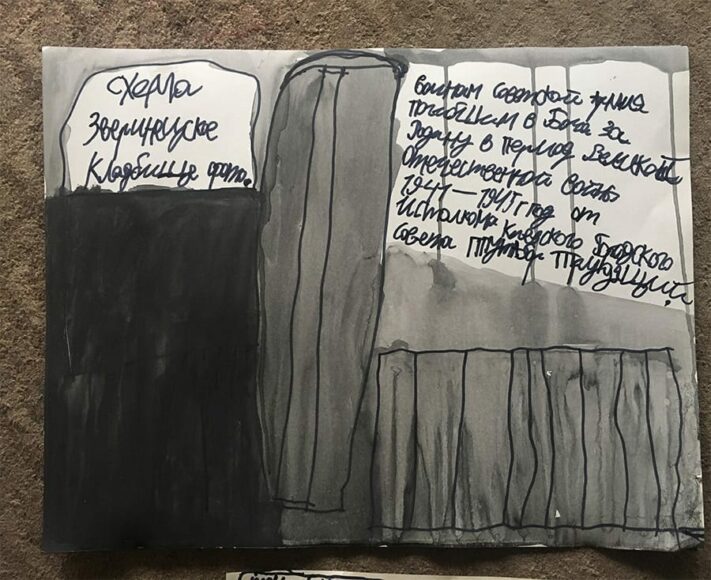 схема
Зверинецкое
кладбище фото.
воинам советской армии
погибшим в боях за
Родину в период Великой
Отечественной войны
1941—1945 год от
Исполкома Киевского Городского
совета трудящий.